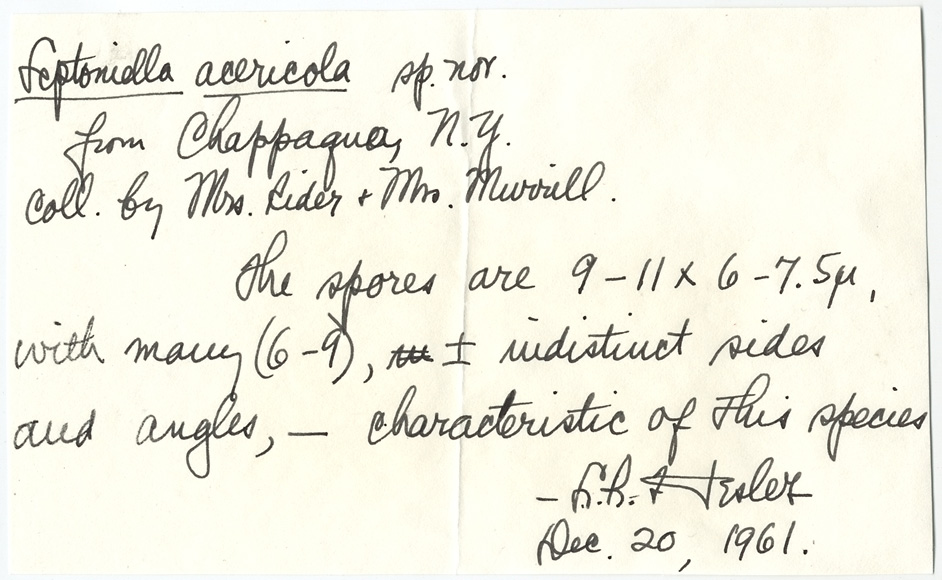 Leptoniella acericola sp. nov.
from Chappaqua, N.Y.
Coll. by Mrs. Rider + Mrs. Murrill.
The spores are 9-11 x 6-7.5µ,
with many (6-9), ± indistinct sides
and angles, — characteristic of this species
- L.R. Hesler
Dec. 20, 1961.